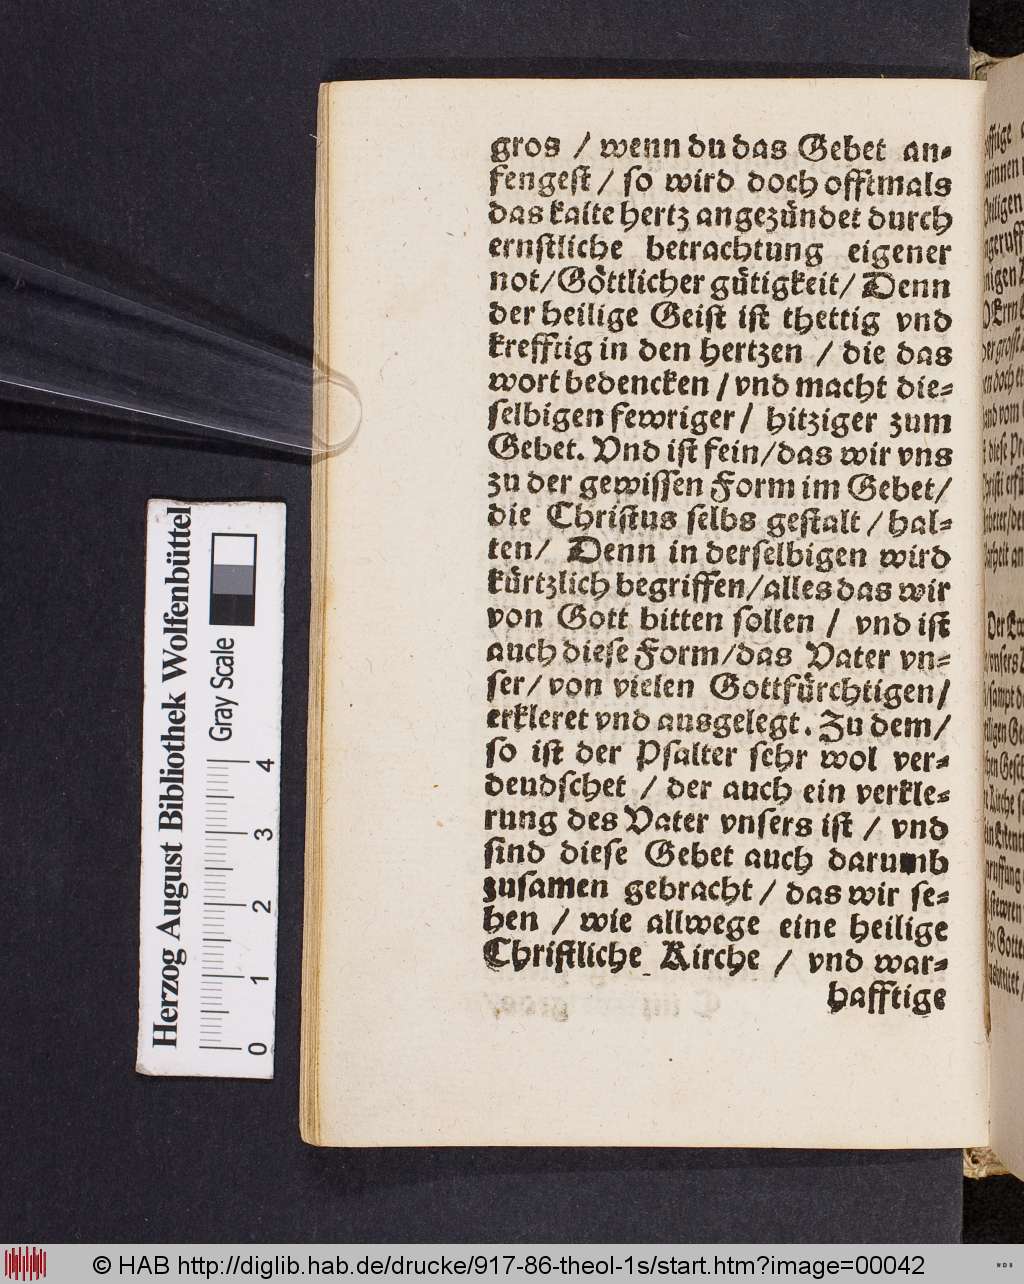 gros / wenn du das Gebet an⸗
fengest / so wird doch offtmals
das kalte hertz angezündet durch
ernstliche betrachtung eigener
not/Göttlicher gütigkeit/ Denn
der heilige Geist ist thettig vnd
krefftig in den hertzen / die das
wort bedencken / vnd macht die⸗
selbigen fewriger / hitziger zum
Gebet. Vnd ist fein/das wir vns
zu der gewissen Form im Gebet/
die Christus selbs gestalt / hal⸗
ten/ Denn in derselbigen wird
kürtzlich begriffen/alles das wir
von Gott bitten sollen / vnd ist
auch diese Form/das Vater vn⸗
ser/ von vielen Gottfürchtigen/
erkleret vnd ausgelegt. Zu dem/
so ist der Psalter sehr wol ver⸗
deudschet / der auch ein verkle⸗
rung des Vater vnsers ist / vnd
sind diese Gebet auch darumb
zusamen gebracht / das wir se⸗
hen / wie allwege eine heilige
Christliche Kirche / vnd war⸗
hafftige
Herzog August Bibliothek Wolfenbüttel
Gray Scale
0 1 2 3 4
© HAB http://diglib.hab.de/drucke/917-86-theol-1s/start.htm?image=00042